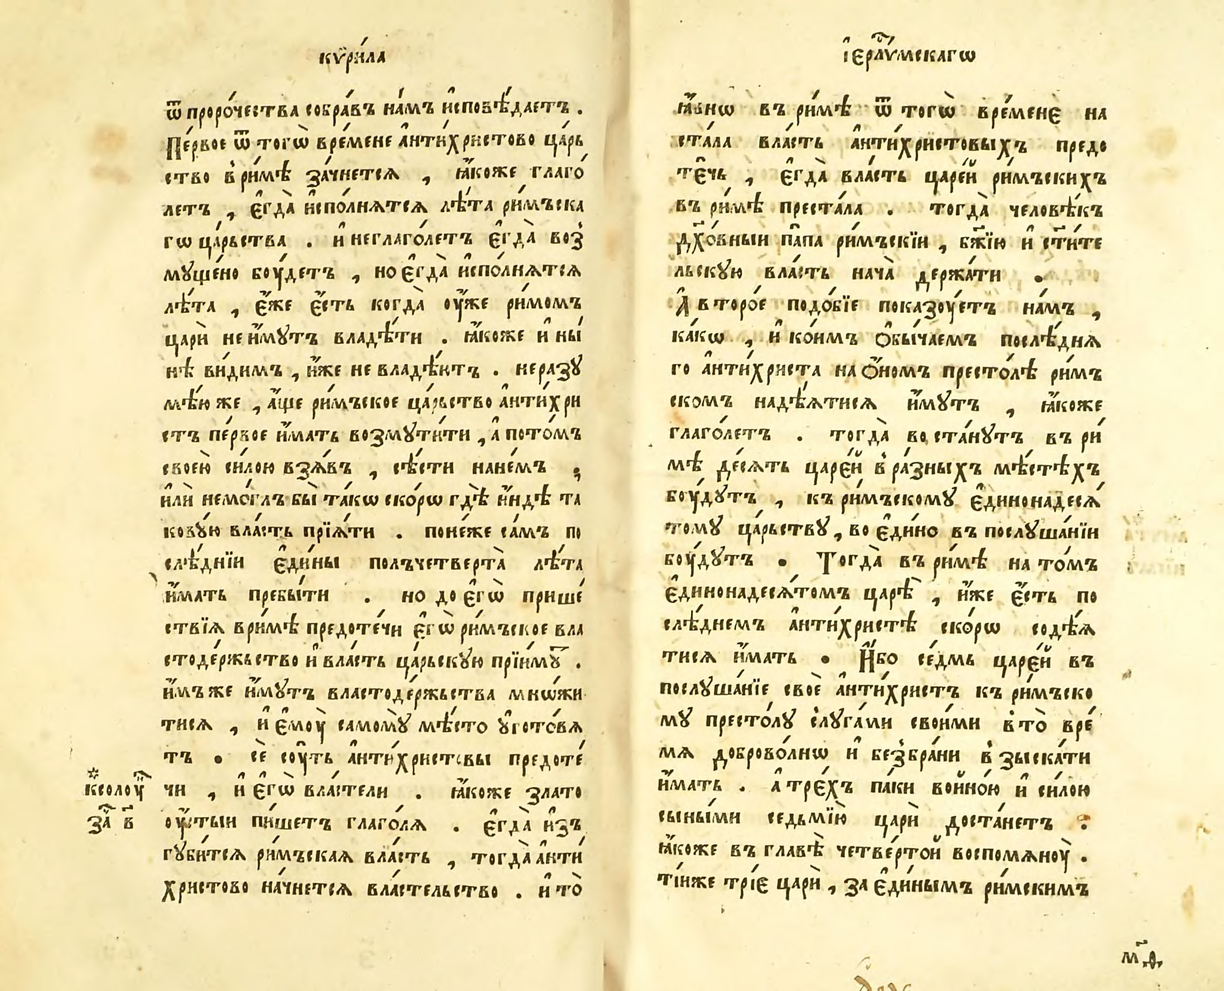 кѵри́ла
ѿ проро́чества собра́въ на́мъ и҆сповѣ́даетъ .
Пе́рвое ѿ того̀ вре́мене а҆нти́христово ца́рь
ство в̾ри́мѣ зачне́тсѧ , ꙗ҆́коже глаго́
летъ , є҆гда̀ и҆спо́лнѧтсѧ лѣ́та ри́мъска
гѡ ца́рьства . и҆ неглаго́летъ є҆гда̀ воз̾
мꙋще́но бꙋ́детъ , но є҆гда̀ и҆спо́лнѧтсѧ
лѣ́та , є҆́же є҆́сть когда̀ оу҆́же ри́момъ
царѝ не и҆́мꙋтъ владѣ́ти . ꙗ҆́коже и҆ ны́
нѣ ви́димъ , и҆́же не владѣ́ютъ . неразꙋ
мѣ́ю же , а҆́ще ри́мъское ца́рьство а҆нти́хри
стъ пе́рвое и҆́мать возмꙋти́ти , а҆ пото́мъ
свое́ю си́лою взѧ́въ , сѣ́сти на не́мъ ;
и҆лѝ не мо́глъ бы̀ та́кѡ ско́рѡ гдѣ̀ и҆́ндѣ та
ковꙋ́ю вла́сть прїѧ́ти . поне́же са́мъ по
слѣ́днїи є҆ди́ны полъчетверта̀ лѣ́та
и҆́мать пребы́ти . но до є҆гѡ̀ прише́
ствїѧ в ри́мѣ предоте́чи є҆гѡ̀ ри́мъское вла
стоде́ржьство и҆ вла́сть ца́рьскꙋю прїи́мꙋ .
и҆́мъже и҆́мꙋтъ властоде́ржьства мно́жи
тисѧ , и҆ є҆мꙋ̀ самомꙋ̀ мѣ́сто ᲂу҆гото́вѧ
тъ . сѐ сꙋ́ть а҆нти́христовы предоте́
чи , и҆ є҆гѡ̀ вла́стели . ꙗ҆́коже злато
ᲂу҆́стыи пи́шетъ глаго́лѧ . є҆гда̀ и҆зъ
гꙋ́битсѧ ри́мъскаѧ вла́сть , тогда̀ а҆нти́
христово на́чнетсѧ вла́стельство . и҆ то̀
к солоу҆́
за҃ в҃
і҆ерл҃имскагѡ
ꙗ҆́внѡ в ри́мѣ ѿ тогѡ̀ вре́мене на
ста́ла вла́сть а҆нти́христовыхъ предо
те́чь , є҆гда̀ вла́сть царе́й ри́мъскихъ
въ ри́мѣ преста́ла . тогда̀ человѣ́къ
дх҃о́вныи па́па ри́мъскїи , бж҃їю и҆ ст҃и́те
льскꙋю вла́сть нача̀ держа́ти .
А҆ второ́е подо́бїе показꙋ́етъ на́мъ ,
ка́кѡ , и҆ кои́мъ ѻ҆бы́чаемъ послѣ́днѧ
го а҆нти́христа на ѻ҆́номъ престо́лѣ ри́мъ
скомъ надѣ́ѧтисѧ и҆́мꙋтъ , ꙗ҆́коже
глаго́летъ . тогда̀ воста́нꙋтъ въ ри́
мѣ де́сѧть царе́й в̾ ра́зныхъ мѣ́стѣхъ
бꙋ́дꙋтъ , къ ри́мъскомꙋ є҆динонадесѧ́
томꙋ ца́рьствꙋ , во є҆ди́но въ послꙋша́нїи
бꙋ́дꙋтъ . Тогда̀ въ ри́мѣ на то́мъ
є҆динонадесѧ́томъ царѣ̀ , и҆́же є҆́сть по
слѣ́днемъ а҆нти́христѣ ско́рѡ содѣ́ѧ
тисѧ и҆́мать . И҆́бо се́дмь царе́й въ
послꙋша́нїе своѐ а҆нти́христъ къ ри́мъско
мꙋ престо́лꙋ слꙋга́ми свои́ми в̾ то̀ вре́
мѧ доброво́лнѡ и҆ без̾бра́ни в̾зыска́ти
и҆́мать . а҆ тре́хъ па́ки войно́ю и҆ си́лою
сы́ными седьмі́ю царѝ доста́нетъ :
ꙗ҆́коже въ главѣ̀ четве́ртой воспомѧнꙋ̀ .
ті́иже трі́е царѝ , за є҆ди́нымъ ри́мскимъ
м҃д,